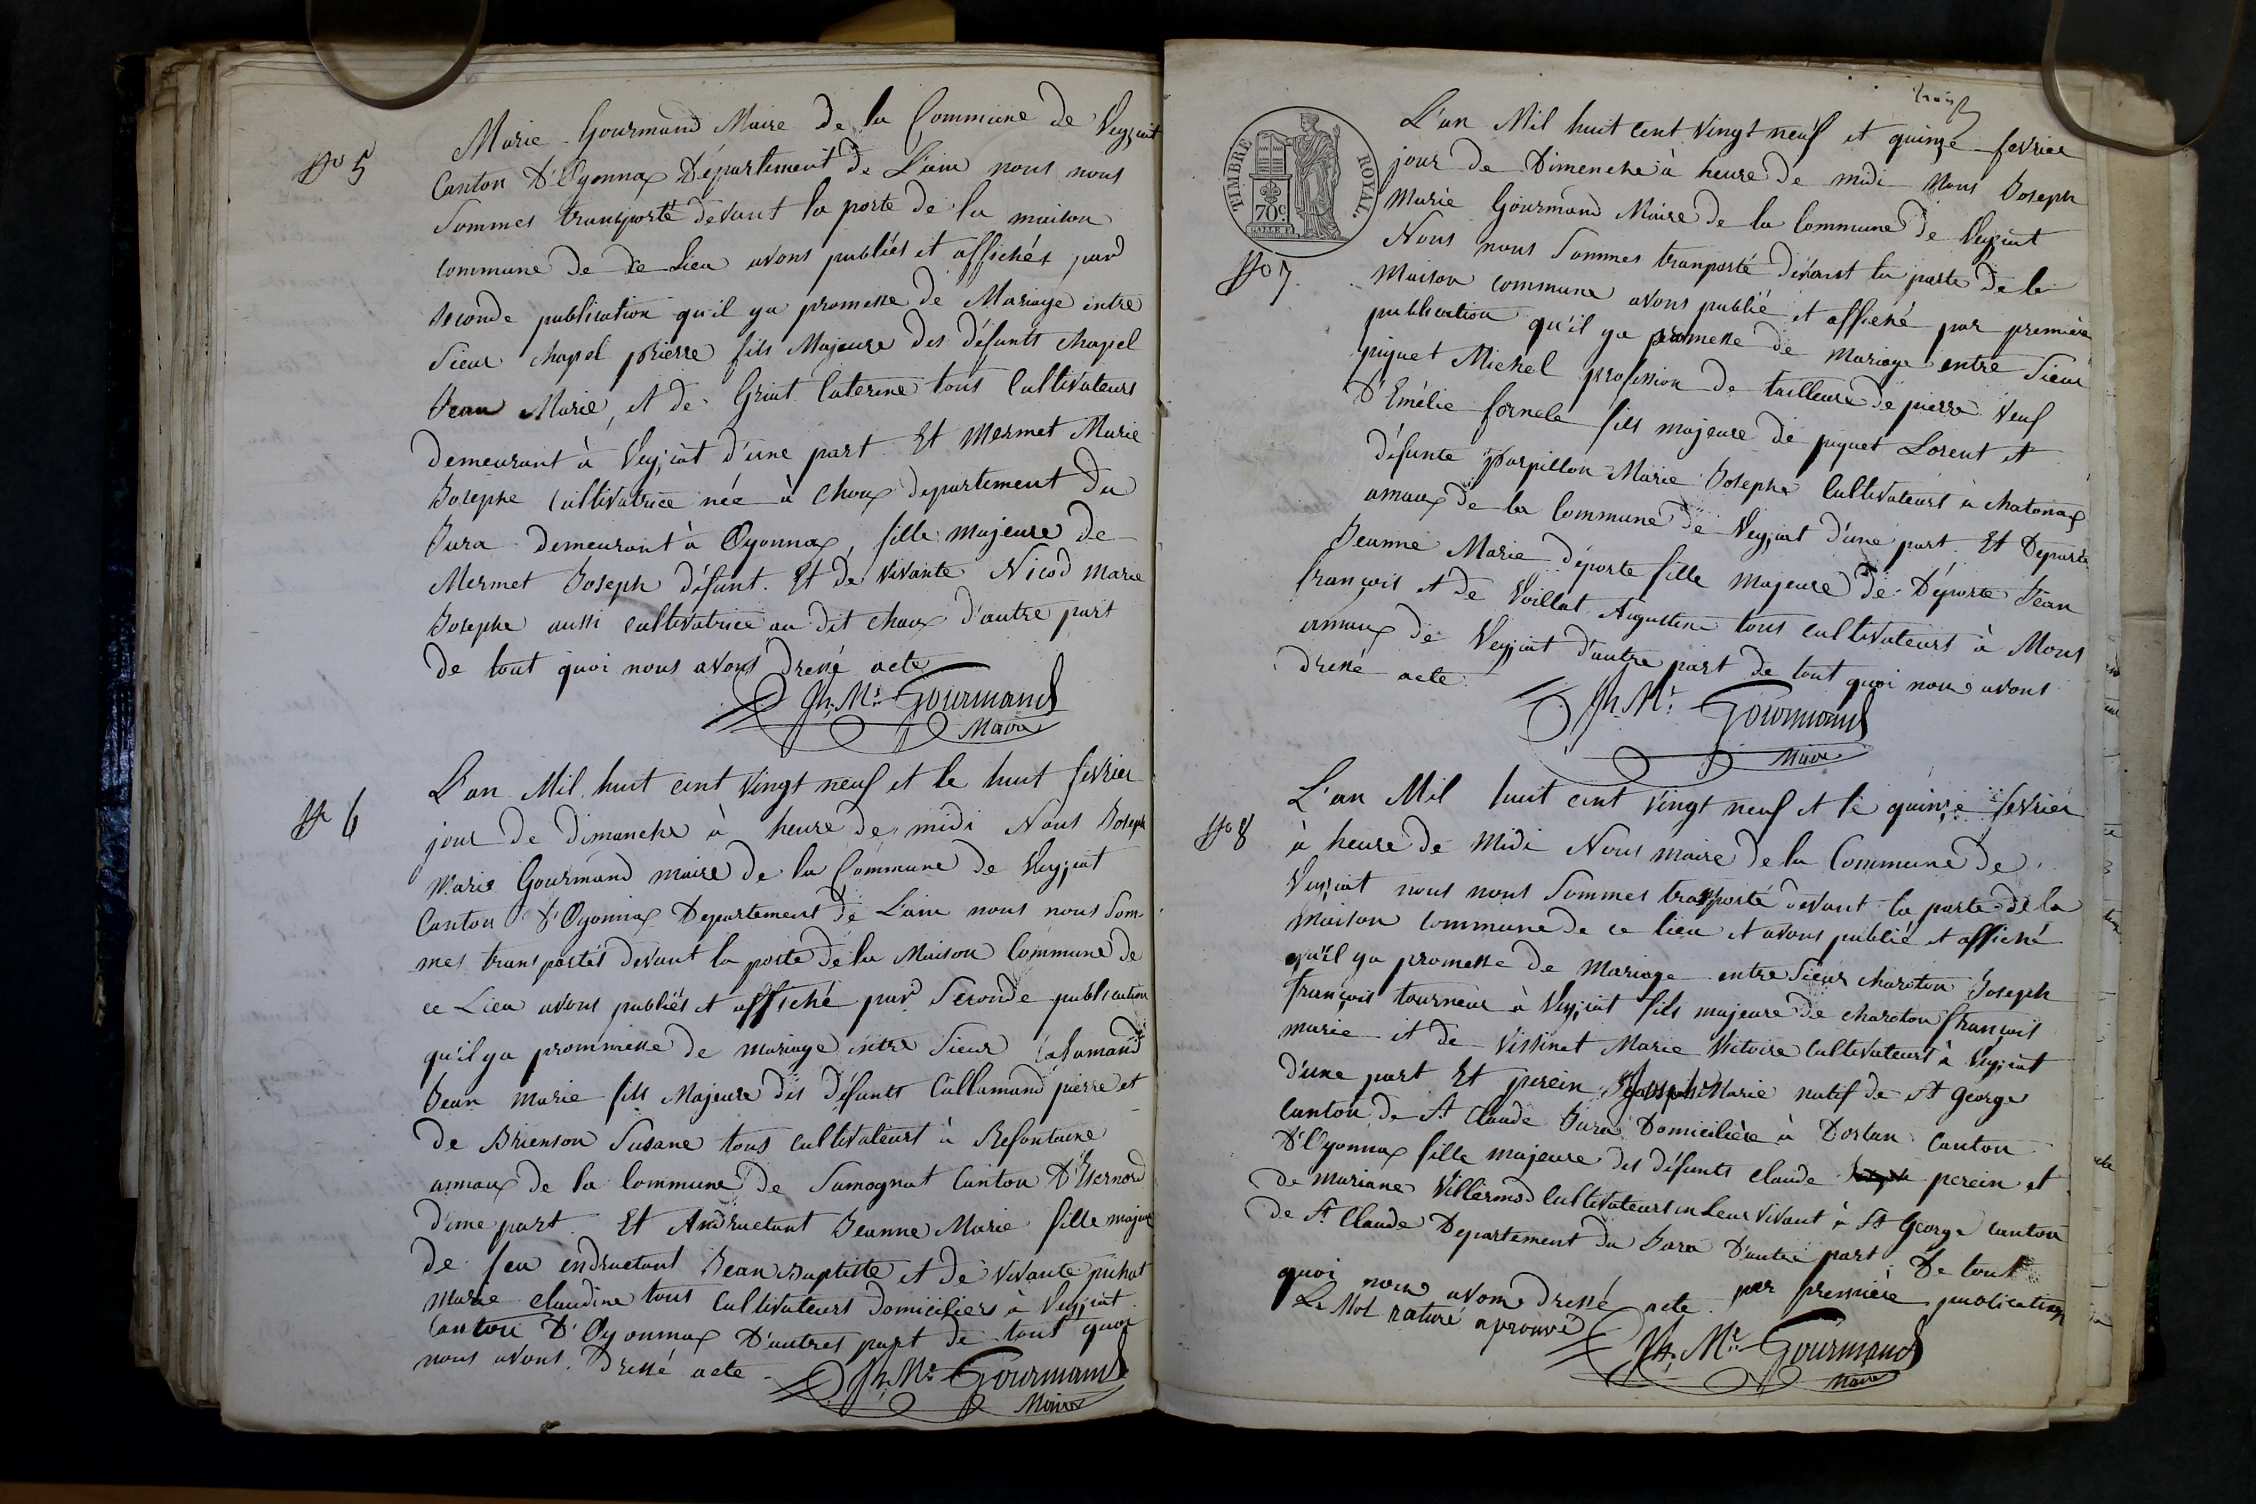 No 5
Marie Gourmand Maire de la Commune de Veyziat
Canton D'Oyonnax Département de L'ain nous nous
Sommes transporté devant la porte de la maison
commune de ce Lieu avons publiés et affichés pard
seconde publication qu'il ya promesse de Mariage entre
Sieur chapel pierre fils Majeure des défunts chapel
Jean Marie, et de Griat Caterine tous Cultivateurs
demeurant à Veyziat d'une part Et Mermet Marie
Josephe Cultivatrice née à choux departement du
Jura demeurant à Oyonnax, fille majeure de
Mermet Joseph défunt. Et de vivante Nicod Marie
Josephe aussi cultivatrice au dit choux d'autre part
de tout quoi nous avons dressé acte
Jh. Mie Gourmand
Maire
No 6
L'an Mil huit cent vingt neuf et le huit fevrier
jour de dimanche à heure de midi Nous Joseph
Marie Gourmand maire de la Commune de Veyziat
Canton D'Oyonnax Departement de L'ain nous nous Som-
mes transportés devant la porte de la Maison Commune de
ce Lieu avons publiés et affiché pard Seconde publication
qu'il ya prommesse de mariage entre Sieur Calamand
Jean marie fils Majeure des Défunts Callamand pierre et
de Brienson Susane tous cultivateurs à Refontaine
amaux de la Commune de Samognat Canton D'Isernord
d'une part. Et Andructant Jeanne Marie fille majeure
de feu endructant Jean Baptiste et de vivante
marie claudine tous Cultivateurs domiciliers à Veyziat
Canton D'Oyonnax D'autres part de tout quoi
nous avons dressé acte
Jh. Mie Gourmand
Maire
trois
TIMBRE ROYAL
70c
No 7
L'an Mil huit cent vingt neuf et quinze fevrier
jour de Dimenche à heure de midi Nous Joseph
Marie Gourmand Maire de la Commune de Veyziat
Nous nous Sommes tranporté devant la porte de la
Maison commune avons publié et affiché par première
publication qu'il ya promesse de mariage entre Sieur
piquet Michel profession de tailleure de pierre veuf
D'Emélie fornele fils majeure de piquet Lorent et
défunte parpillon Marie Josephe Cultivateurs à chatonax
amaux de la Commune de Veyziat d'une part. Et Deporte
Jeanne Marie déporte fille Majeure de Déporte Jean
françois et de Voillat Augustine tous cultivateurs à Mons
amaux de Veyziat d'autre part de tout quoi nous avons
dressé acte
Jh. Mie Gourmand
Maire
No 8
L'an Mil huit cent vingt neuf et le quinze fevrier
à heure de Midi Nous maire de la Commune de
Veyziat nous nous Sommes transporté devant la porte de la
Maison commune de ce lieu et avons publié et affiché
qu'il ya promesse de Mariage entre Sieur chareton Joseph
françois tourneur à Veyziat fils majeure de chareton françois
marie et de Vissinet Marie Victoire Cultivateurs à Veyziat
d'une part Et perein Josephe Marie natif de St George
Canton de St Claude Jura Domicilière à Dortan Canton
D'Oyonnax fille majeure des défunts claude perein et
de Mariane Villermod Cultivateurs en Leur vivant à St George canton
de St Claude Departement du Jura D'autre part. De tout
quoi nous avons dressé acte par première publication
Le Mot raturé aprouvé
Jh. Mie Gourmand
Maire